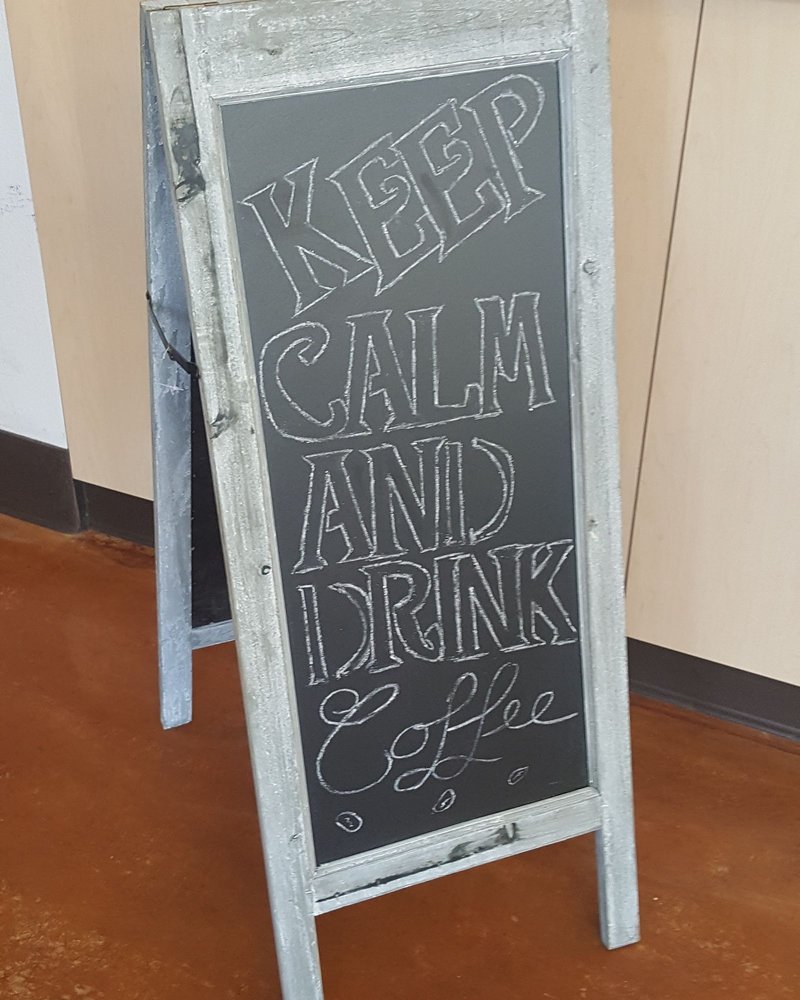 KEEP
CALM
AND
DRINK
Coffee